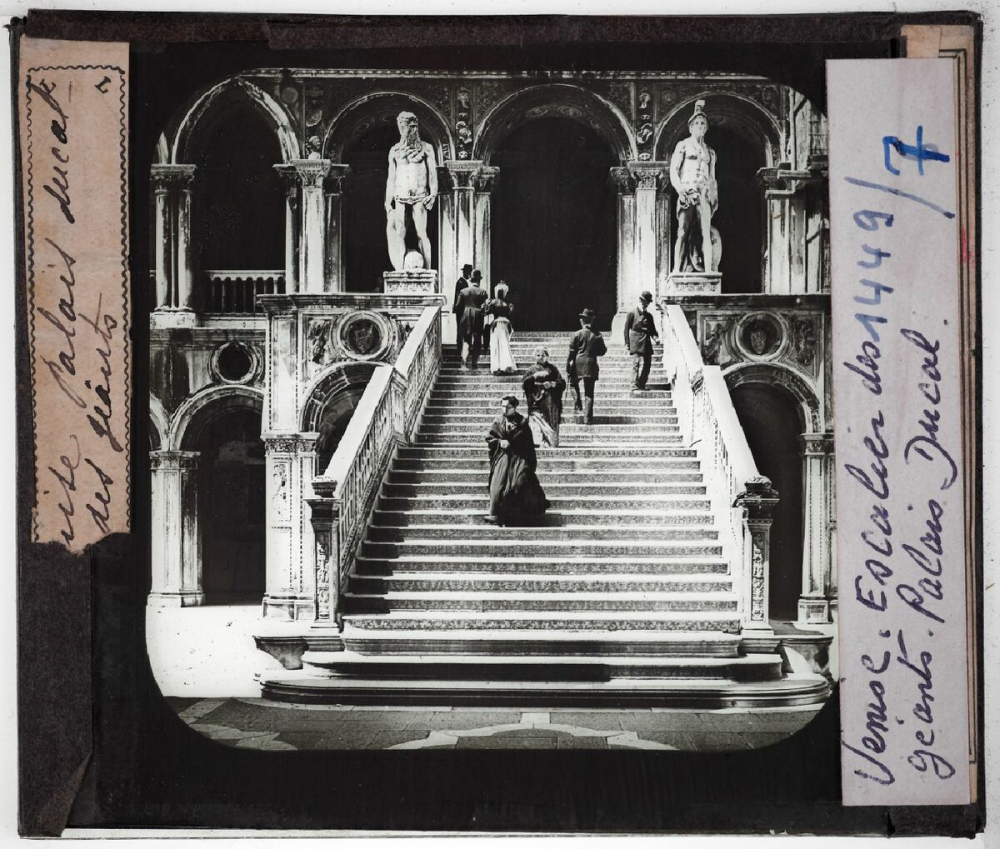 ise Palais ducal
des géants
Venise: Escalier des 1449/7
géants. Palais Ducal.